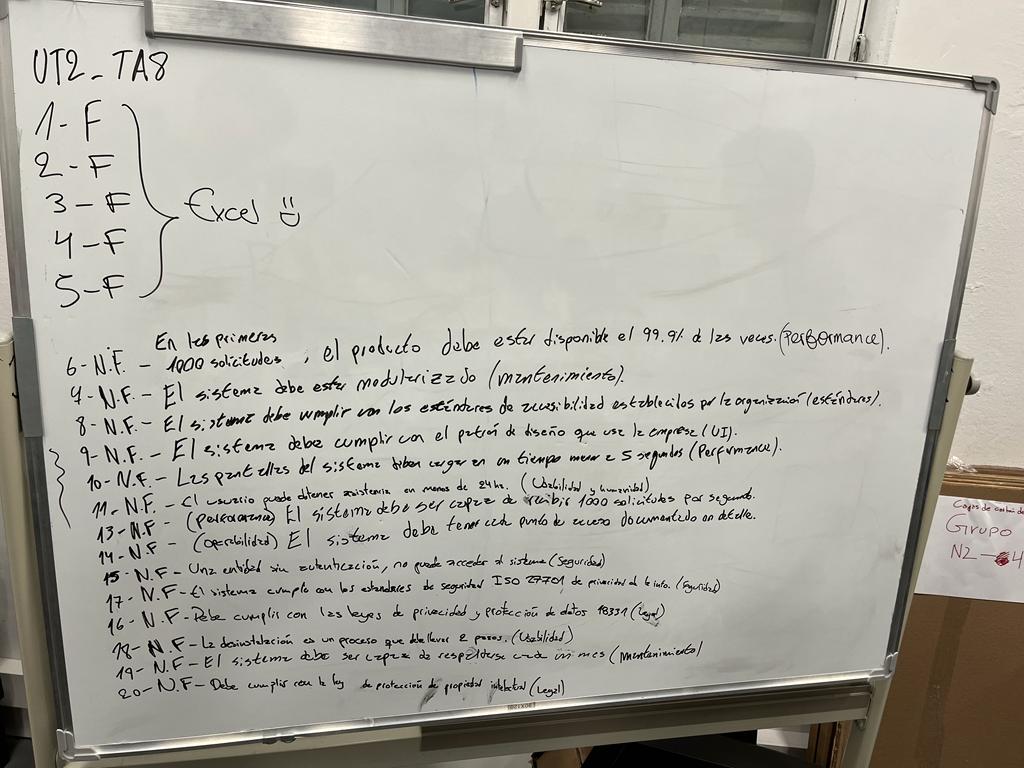 UT2_TA8
1- F
2- F
3- F
4- F
5- F
Excel
En las primeras
6- N.F. - 1000 solicitudes, el producto debe estar disponible el 99.9% de las veces. (Performance).
7- N.F. - El sistema debe estar modularizado (mantenimiento).
8- N.F. - El sistema debe cumplir con los estándares de accesibilidad establecidos por la organización (estándares).
9- N.F. - El sistema debe cumplir con el patrón de diseño que usa la empresa (UI).
10- N.F. - Las pantallas del sistema deben cargar en un tiempo menor a 5 segundos (Performance).
11- N.F. - El usuario puede obtener asistencia en menos de 24 hs. (Usabilidad y humanidad)
13- N.F - (performance) El sistema debe ser capaz de recibir 1000 solicitudes por segundo.
14- N.F - (operabilidad) El sistema debe tener cada punto de acceso documentado en detalle.
15- N.F - Una entidad sin autenticación, no puede acceder al sistema (Seguridad)
17- N.F - El sistema cumple con los estandares de seguridad ISO 27701 de privacidad de la info. (Seguridad)
16- N.F - Debe cumplir con las leyes de privacidad y protección de datos 18331 (Legal)
N.F - La desinstalación es un proceso que debe llevar 2 pasos. (Usabilidad)
19- N.F - El sistema debe ser capaz de respaldarse cada un mes (mantenimiento)
20- N.F - Debe cumplir con la ley de protección de propiedad intelectual (Legal)
Grupo
N2 - 4